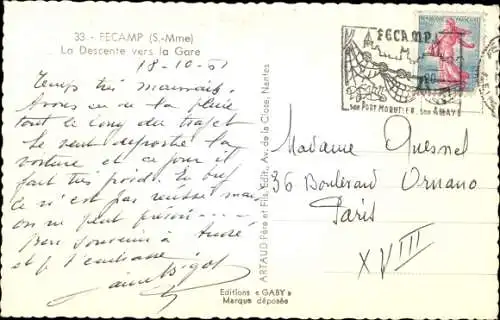 33 - FECAMP (S.-Mme)
La Descente vers la Gare
18-10-61
Temps très mauvais.
Avons eu de la pluie
tout le long du trajet
Le vent déporte la
voiture et ce jour il
fait très froid. En bref
ce n'est pas réussi mais
on ne peut prévoir ....
Bon souvenir à André
et je t'embrasse
ARTAUD Père et Fils, Edit. Av. de la Close, Nantes
Editions « GABY »
Marque déposée
FECAMP
Son PORT MORUTIER, Son ABBAYE
Madame Quesnel
36 Boulevard Ornano
Paris
XVIII